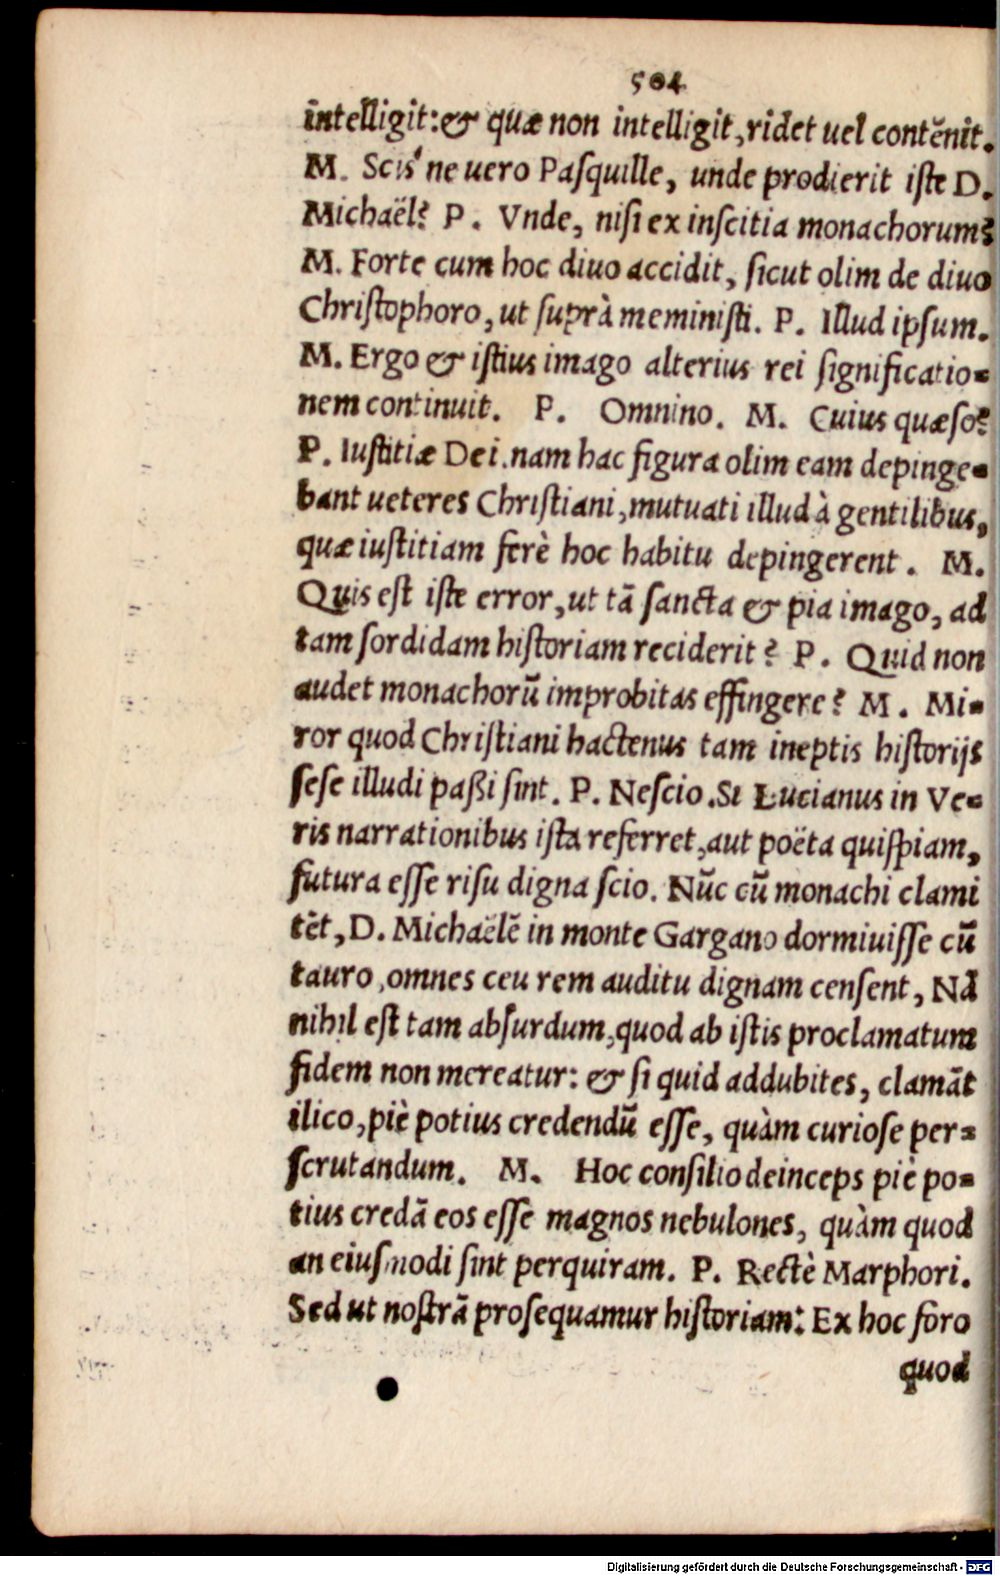 504
intelligit:& quæ non intelligit, ridet uel contẽnit.
M. Scis' ne uero Pasquille, unde prodierit iste D.
Michaël? P. Vnde, nisi ex inscitia monachorum?
M. Forte cum hoc diuo accidit, sicut olim de diuo
Christophoro, ut suprà meministi. P. Illud ipsum.
M. Ergo & istius imago alterius rei significatio=
nem continuit. P. Omnino. M. Cuius quæso?
P. Iustitiæ Dei. nam hac figura olim eam depinge=
bant ueteres Christiani, mutuati illud à gentilibus,
quæ iustitiam ferè hoc habitu depingerent. M.
Quis est iste error, ut tã sancta & pia imago, ad
tam sordidam historiam reciderit? P. Quid non
audet monachorũ improbitas effingere? M. Mi=
ror quod Christiani hactenus tam ineptis historijs
sese illudi paßi sint. P. Nescio. Si Lucianus in Ve=
ris narrationibus ista referret, aut poëta quispiam,
futura esse risu digna scio. Nũc cũ monachi clami
tẽt, D. Michaëlẽ in monte Gargano dormiuisse cũ
tauro, omnes ceu rem auditu dignam censent, Nã
nihil est tam absurdum, quod ab istis proclamatum
fidem non mereatur: & si quid addubites, clamãt
ilico, piè potius credendũ esse, quàm curiose per=
scrutandum. M. Hoc consilio deinceps piè po=
tius credã eos esse magnos nebulones, quàm quod
an eiusmodi sint perquiram. P. Rectè Marphori.
Sed ut nostrã prosequamur historiam: Ex hoc foro
quod
Digitalisierung gefördert durch die Deutsche Forschungsgemeinschaft - DFG